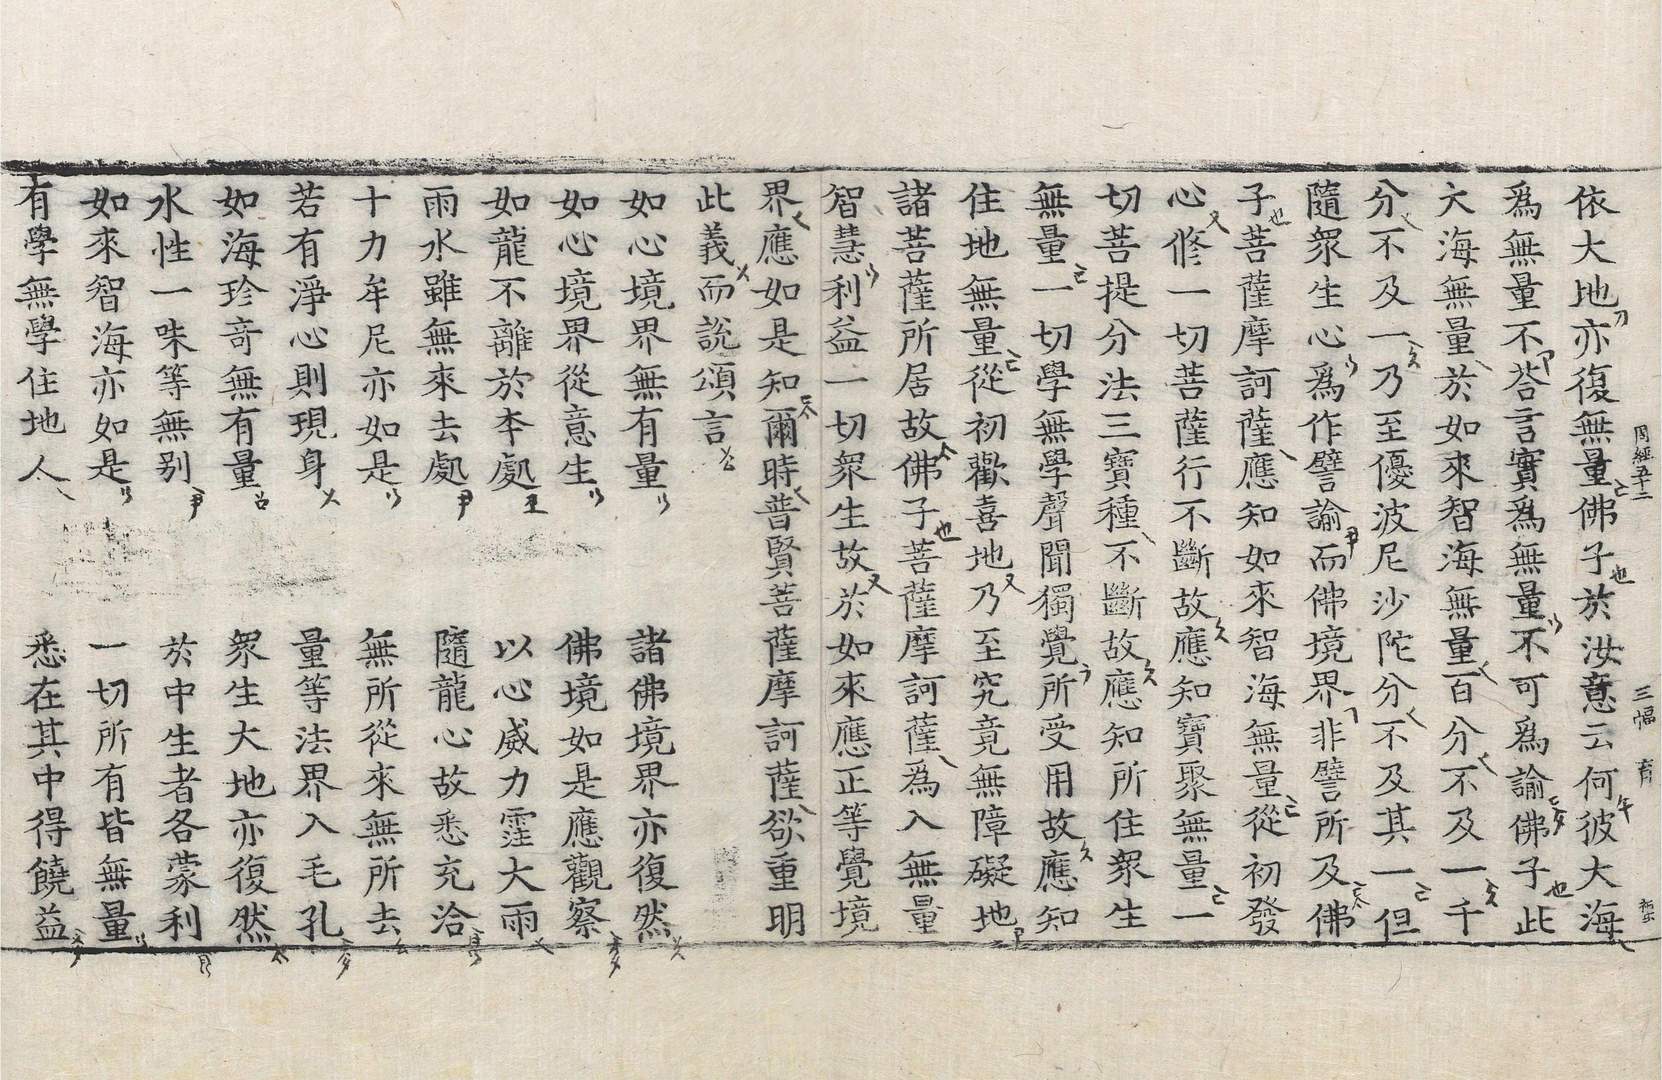 周經五十二　三幅　育
依大地亦復無量佛子於汝意云何彼大海
爲無量不荅言實爲無量不可爲諭佛子此
大海無量於如來智海無量百分不及一千
分不及一乃至優波尼沙陀分不及其一但
隨衆生心爲作譬諭而佛境界非譬所及佛
子菩薩摩訶薩應知如來智海無量從初發
心修一切菩薩行不斷故應知寶聚無量一
切菩提分法三寶種不斷故應知所住衆生
無量一切學無學聲聞獨覺所受用故應知
住地無量從初歡喜地乃至究竟無障礙地
諸菩薩所居故佛子菩薩摩訶薩爲入無量
智慧利益一切衆生故於如來應正等覺境
界應如是知爾時普賢菩薩摩訶薩欲重明
此義而說頌言
如心境界無有量　諸佛境界亦復然
如心境界從意生　佛境如是應觀察
如龍不離於本處　以心威力霔大雨
雨水雖無來去處　隨龍心故悉充洽
十力牟尼亦如是　無所從來無所去
若有淨心則現身　量等法界入毛孔
如海珍奇無有量　衆生大地亦復然
水性一味等無別　於中生者各蒙利
如來智海亦如是　一切所有皆無量
有學無學住地人　悉在其中得饒益